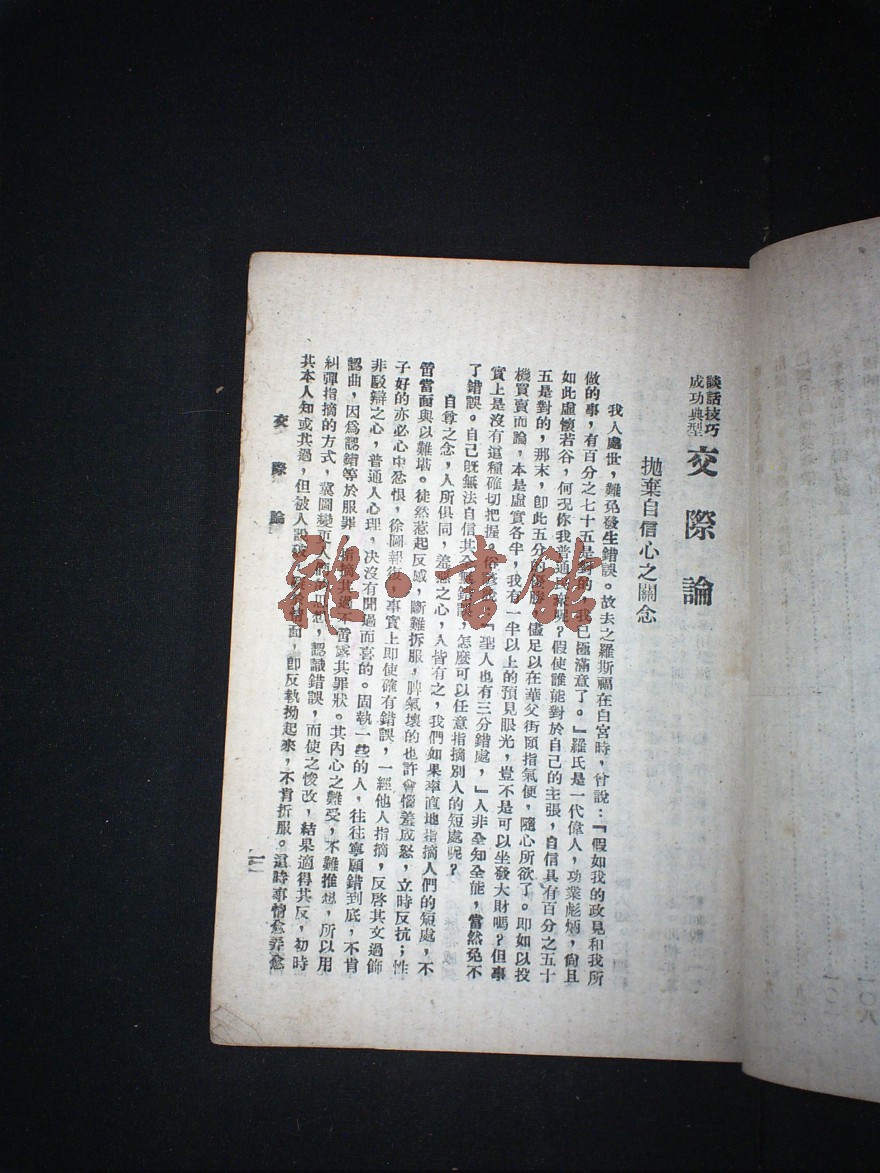 談話技巧
成功典型
交際論
拋棄自信心之關念
我人處世，難免發生錯誤。故去之羅斯福在白宮時，曾說：『假如我的政見和我所
做的事，有百分之七十五是對的，我已極滿意了。』羅氏是一代偉人，功業彪炳，尙且
如此虛懷若谷，何況你我普通呢？假使誰能對於自己的主張，自信具有百分之五十
五是對的，那末，卽此五分的優勝，儘足以在華父街頤指氣使，隨心所欲了。卽如以投
機買賣而論，本是虛實各半，我有一半以上的預見眼光，豈不是可以坐發大財嗎？但事
實上是沒有這種確切把握，俗『聖人也有三分錯處，』人非全知全能，當然免不
了錯誤。自己旣無法自信其錯誤，怎麼可以任意指摘別人的短處呢？
自尊之念，人所俱同，羞惡之心，人皆有之，我們如果率直地指摘人們的短處，不
啻當面與以難堪。徒然惹起反感，斷難折服，脾氣壞的也許會惱羞成怒，立時反抗；性
子好的亦必心中忿恨，徐圖報復，事實上卽使確有錯誤，一經他人指摘，反啓其文過飾
非駁辯之心，普通人心理，決沒有聞過而喜的。固執一些的人，往往寧願錯到底，不肯
認曲，因爲認錯等於服罪，指摘其過不啻露其罪狀。其內心之難受，不難推想，所以用
糾彈指摘的方式，冀圖變更人們的思想，認識錯誤，而使之悛改，結果適得其反，初時
其本人知或其過，但被人說破，情面，卽反執拗起來，不肯折服。這時事情愈弄愈
交際論
一
雜·書館
一〇八
一〇一